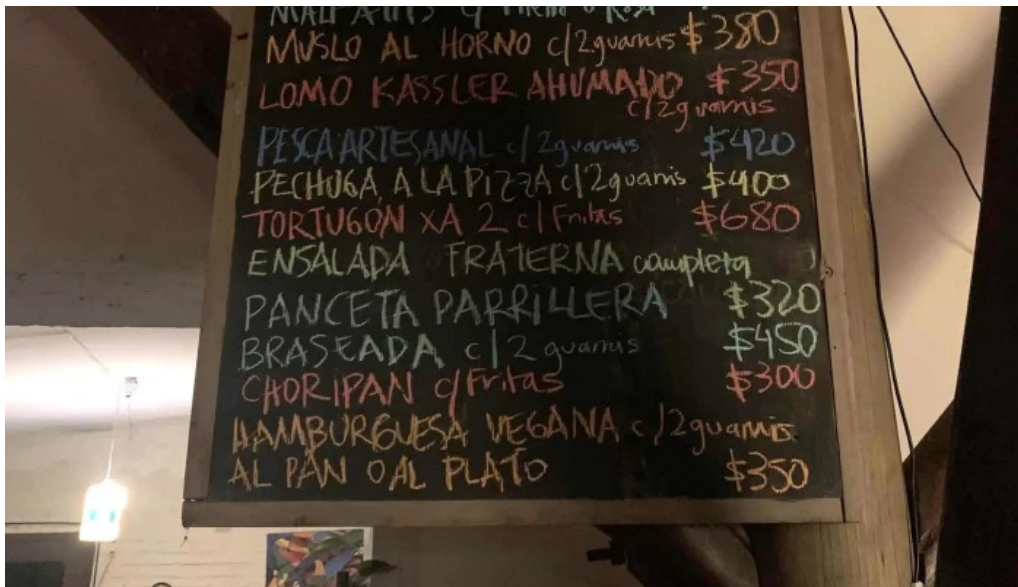 MUSLO AL HORNO c/2guarnis $380
LOMO KASSLER AHUMADO $350
c/2guarnis
PESCA ARTESANAL c/2guarnis $420
PECHUGA A LA PIZZA c/2guarnis $400
TORTUGÓN XA 2 c/Fritas $680
ENSALADA FRATERNA completa
PANCETA PARRILLERA $320
BRASEADA c/2 guarnis $450
CHORIPAN c/Fritas $300
HAMBURGUESA VEGANA c/2guarnis
AL PAN O AL PLATO $350